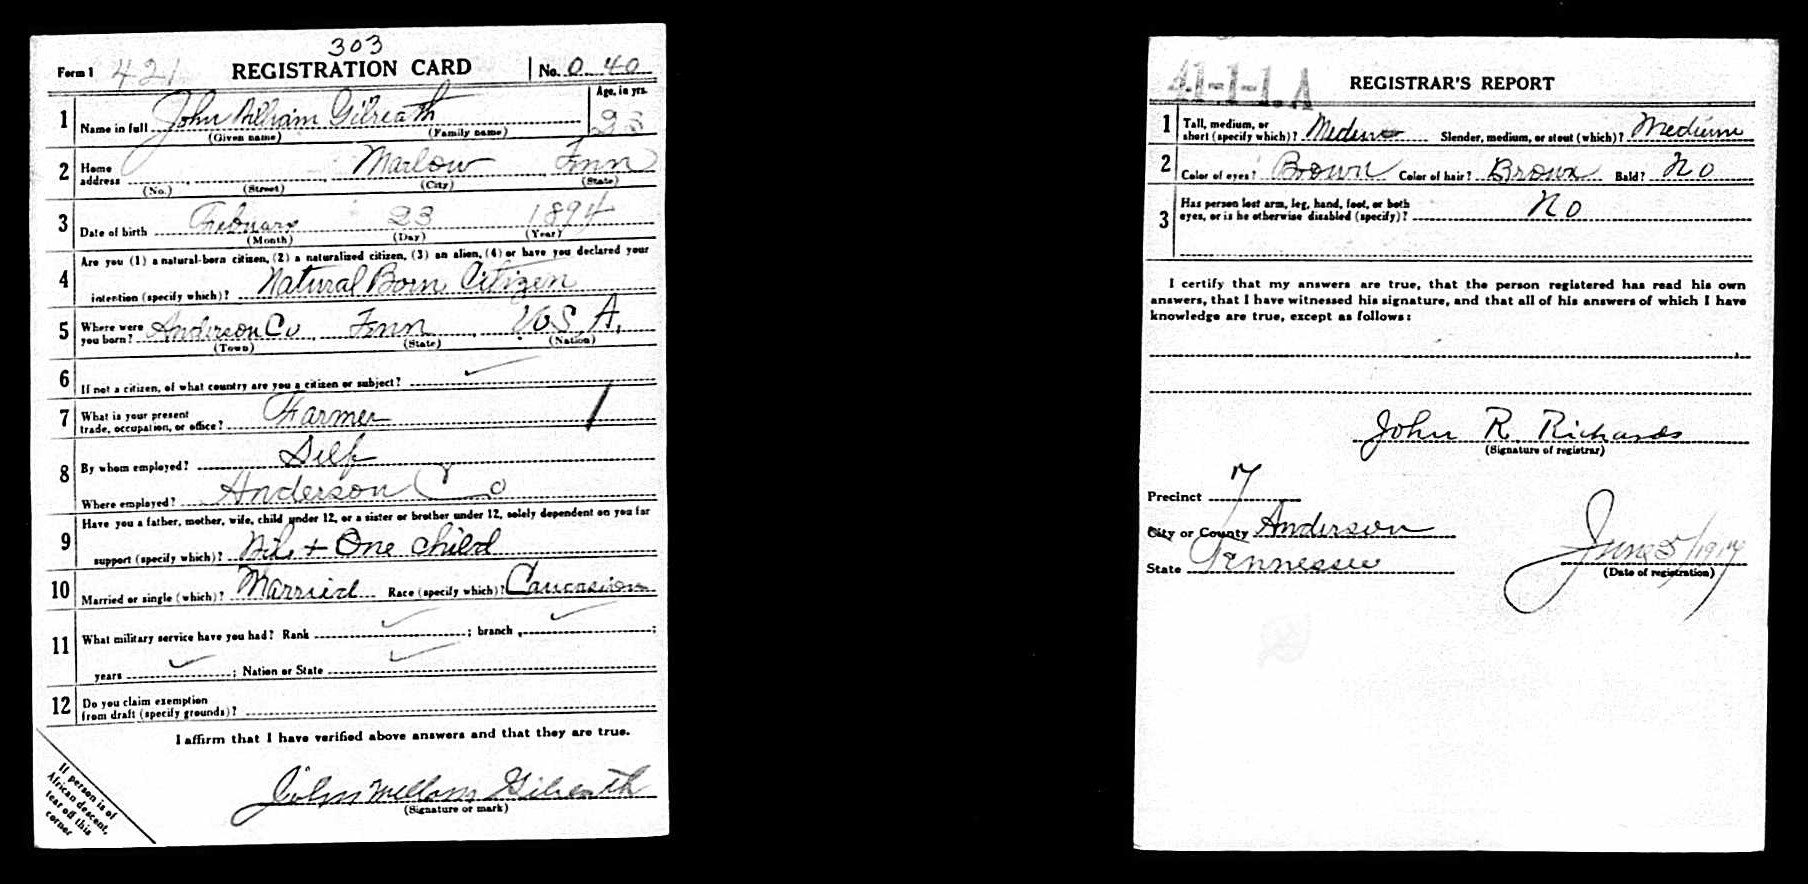 303
Form 1 421 REGISTRATION CARD No. 0 40
1 Name in full John William Gilreath Age, in yrs. 23
(Given name) (Family name)
2 Home address Marlow Tenn
(No.) (Street) (City) (State)
3 Date of birth Febuary 23 1894
(Month) (Day) (Year)
4 Are you (1) a natural-born citizen, (2) a naturalized citizen, (3) an alien, (4) or have you declared your
intention (specify which)? Natural Born Citizen
5 Where were you born? Anderson Co Tenn U.S.A.
(Town) (State) (Nation)
6 If not a citizen, of what country are you a citizen or subject?
7 What is your present trade, occupation, or office? Farmer
8 By whom employed? Self
Where employed? Anderson Co
9 Have you a father, mother, wife, child under 12, or a sister or brother under 12, solely dependent on you for
support (specify which)? + One child
10 Married or single (which)? Married Race (specify which)? Caucasion
11 What military service have you had? Rank ; branch ;
years ; Nation or State
12 Do you claim exemption from draft (specify grounds)?
I affirm that I have verified above answers and that they are true.
John Gilreath
(Signature or mark)
If person is of
African descent,
tear off this
corner
41-1-1 A REGISTRAR'S REPORT
1 Tall, medium, or short (specify which)? Medium Slender, medium, or stout (which)? Medium
2 Color of eyes? Brown Color of hair? Brown Bald? No
3 Has person lost arm, leg, hand, foot, or both
eyes, or is he otherwise disabled (specify)? No
I certify that my answers are true, that the person registered has read his own
answers, that I have witnessed his signature, and that all of his answers of which I have
knowledge are true, except as follows:
John R. Richards
(Signature of registrar)
Precinct 7
City or County Anderson
State Tennessee
June 5/1917
(Date of registration)